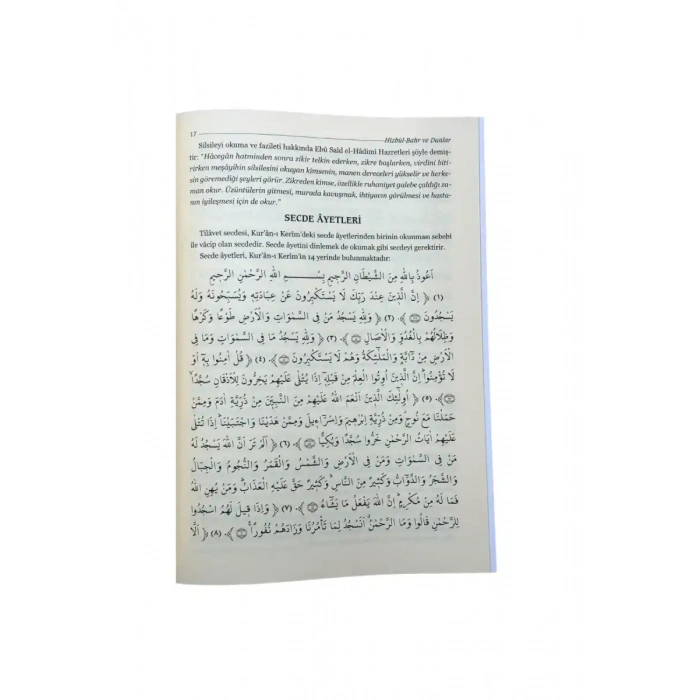 17
Hizbül-Bahr ve Dualar
Silsileyi okuma ve fazileti hakkında Ebû Saîd el-Hâdimî Hazretleri şöyle demiş-
tir: "Hâcegân hatminden sonra zikir telkin ederken, zikre başlarken, virdini biti-
rirken meşâyihin silsilesini okuyan kimsenin, manen dereceleri yükselir ve herke-
sin göremediği şeyleri görür. Zikreden kimse, özellikle ruhaniyet galebe çaldığı za-
man okur. Üzüntülerin gitmesi, murada kavuşmak, ihtiyacın görülmesi ve hasta-
nın iyileşmesi için de okur."
SECDE ÂYETLERİ
Tilâvet secdesi, Kur'ân-ı Kerîm'deki secde âyetlerinden birinin okunması sebebi
ile vâcip olan secdedir. Secde âyetini dinlemek de okumak gibi secdeyi gerektirir.
Secde âyetleri, Kur'ân-ı Kerîm'in 14 yerinde bulunmaktadır:
اَعُوذُ بِاللهِ مِنَ الشَّيْطَانِ الرَّجِيمِ بِسْـــمِ اللهِ الرَّحْمٰنِ الرَّحِيمِ
(١) ﴿ اِنَّ الَّذِينَ عِنْدَ رَبِّكَ لَا يَسْتَكْبِرُونَ عَنْ عِبَادَتِهِ وَيُسَبِّحُونَهُ وَلَهُ
يَسْجُدُونَ ﴾. (٢) ﴿ وَلِلّٰهِ يَسْجُدُ مَنْ فِى السَّمٰوَاتِ وَالْاَرْضِ طَوْعًا وَكَرْهًا
وَظِلَالُهُمْ بِالْغُدُوِّ وَالْاٰصَالِ ﴾. (٣) ﴿ وَلِلّٰهِ يَسْجُدُ مَا فِى السَّمٰوَاتِ وَمَا فِى
الْاَرْضِ مِنْ دَٓابَّةٍ وَالْمَلٰٓئِكَةُ وَهُمْ لَا يَسْتَكْبِرُونَ ﴾. (٤) ﴿ قُلْ اٰمِنُوا بِهِٓ اَوْ
لَا تُؤْمِنُوا اِنَّ الَّذِينَ اُوتُوا الْعِلْمَ مِنْ قَبْلِهِٓ اِذَا يُتْلٰى عَلَيْهِمْ يَخِرُّونَ لِلْاَذْقَانِ سُجَّدًا
﴾. (٥) ﴿ اُولٰٓئِكَ الَّذِينَ اَنْعَمَ اللهُ عَلَيْهِمْ مِنَ النَّبِيِّنَ مِنْ ذُرِّيَّةِ اٰدَمَ وَمِمَّنْ
حَمَلْنَا مَعَ نُوحٍ وَمِنْ ذُرِّيَّةِ اِبْرٰهِيمَ وَاِسْرَٓاءِيلَ وَمِمَّنْ هَدَيْنَا وَاجْتَبَيْنَا اِذَا تُتْلٰى
عَلَيْهِمْ اٰيَاتُ الرَّحْمٰنِ خَرُّوا سُجَّدًا وَبُكِيًّا ﴾. (٦) ﴿ اَلَمْ تَرَ اَنَّ اللهَ يَسْجُدُ لَهُ
مَنْ فِى السَّمٰوَاتِ وَمَنْ فِى الْاَرْضِ وَالشَّمْسُ وَالْقَمَرُ وَالنُّجُومُ وَالْجِبَالُ
وَالشَّجَرُ وَالدَّوَٓابُّ وَكَثِيرٌ مِنَ النَّاسِ وَكَثِيرٌ حَقَّ عَلَيْهِ الْعَذَابُ وَمَنْ يُهِنِ اللهُ
فَمَا لَهُ مِنْ مُكْرِمٍ اِنَّ اللهَ يَفْعَلُ مَا يَشَٓاءُ ﴾. (٧) ﴿ وَاِذَا قِيلَ لَهُمُ اسْجُدُوا
لِلرَّحْمٰنِ قَالُوا وَمَا الرَّحْمٰنُ اَنَسْجُدُ لِمَا تَأْمُرُنَا وَزَادَهُمْ نُفُورًا ﴾. (٨) ﴿ اَلَّا